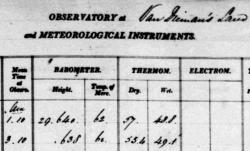 OBSERVATORY at Van Dieman's Land
and METEOROLOGICAL INSTRUMENTS.
Mean Time of Observ. BAROMETER. THERMOM. ELECTROM.
Height. Temp. of Merc. Dry. Wet.
1.10 29.640 62 57. 48.8
3.10 .638 62 55.4 49.8